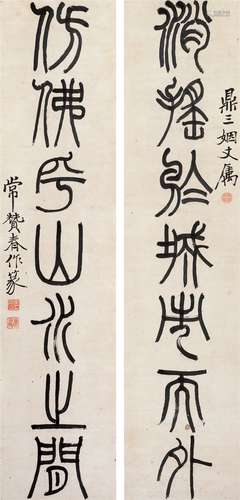 鼎三姻丈属
消搖於城市而外
仿佛乎山水之閒
常贊春作篆